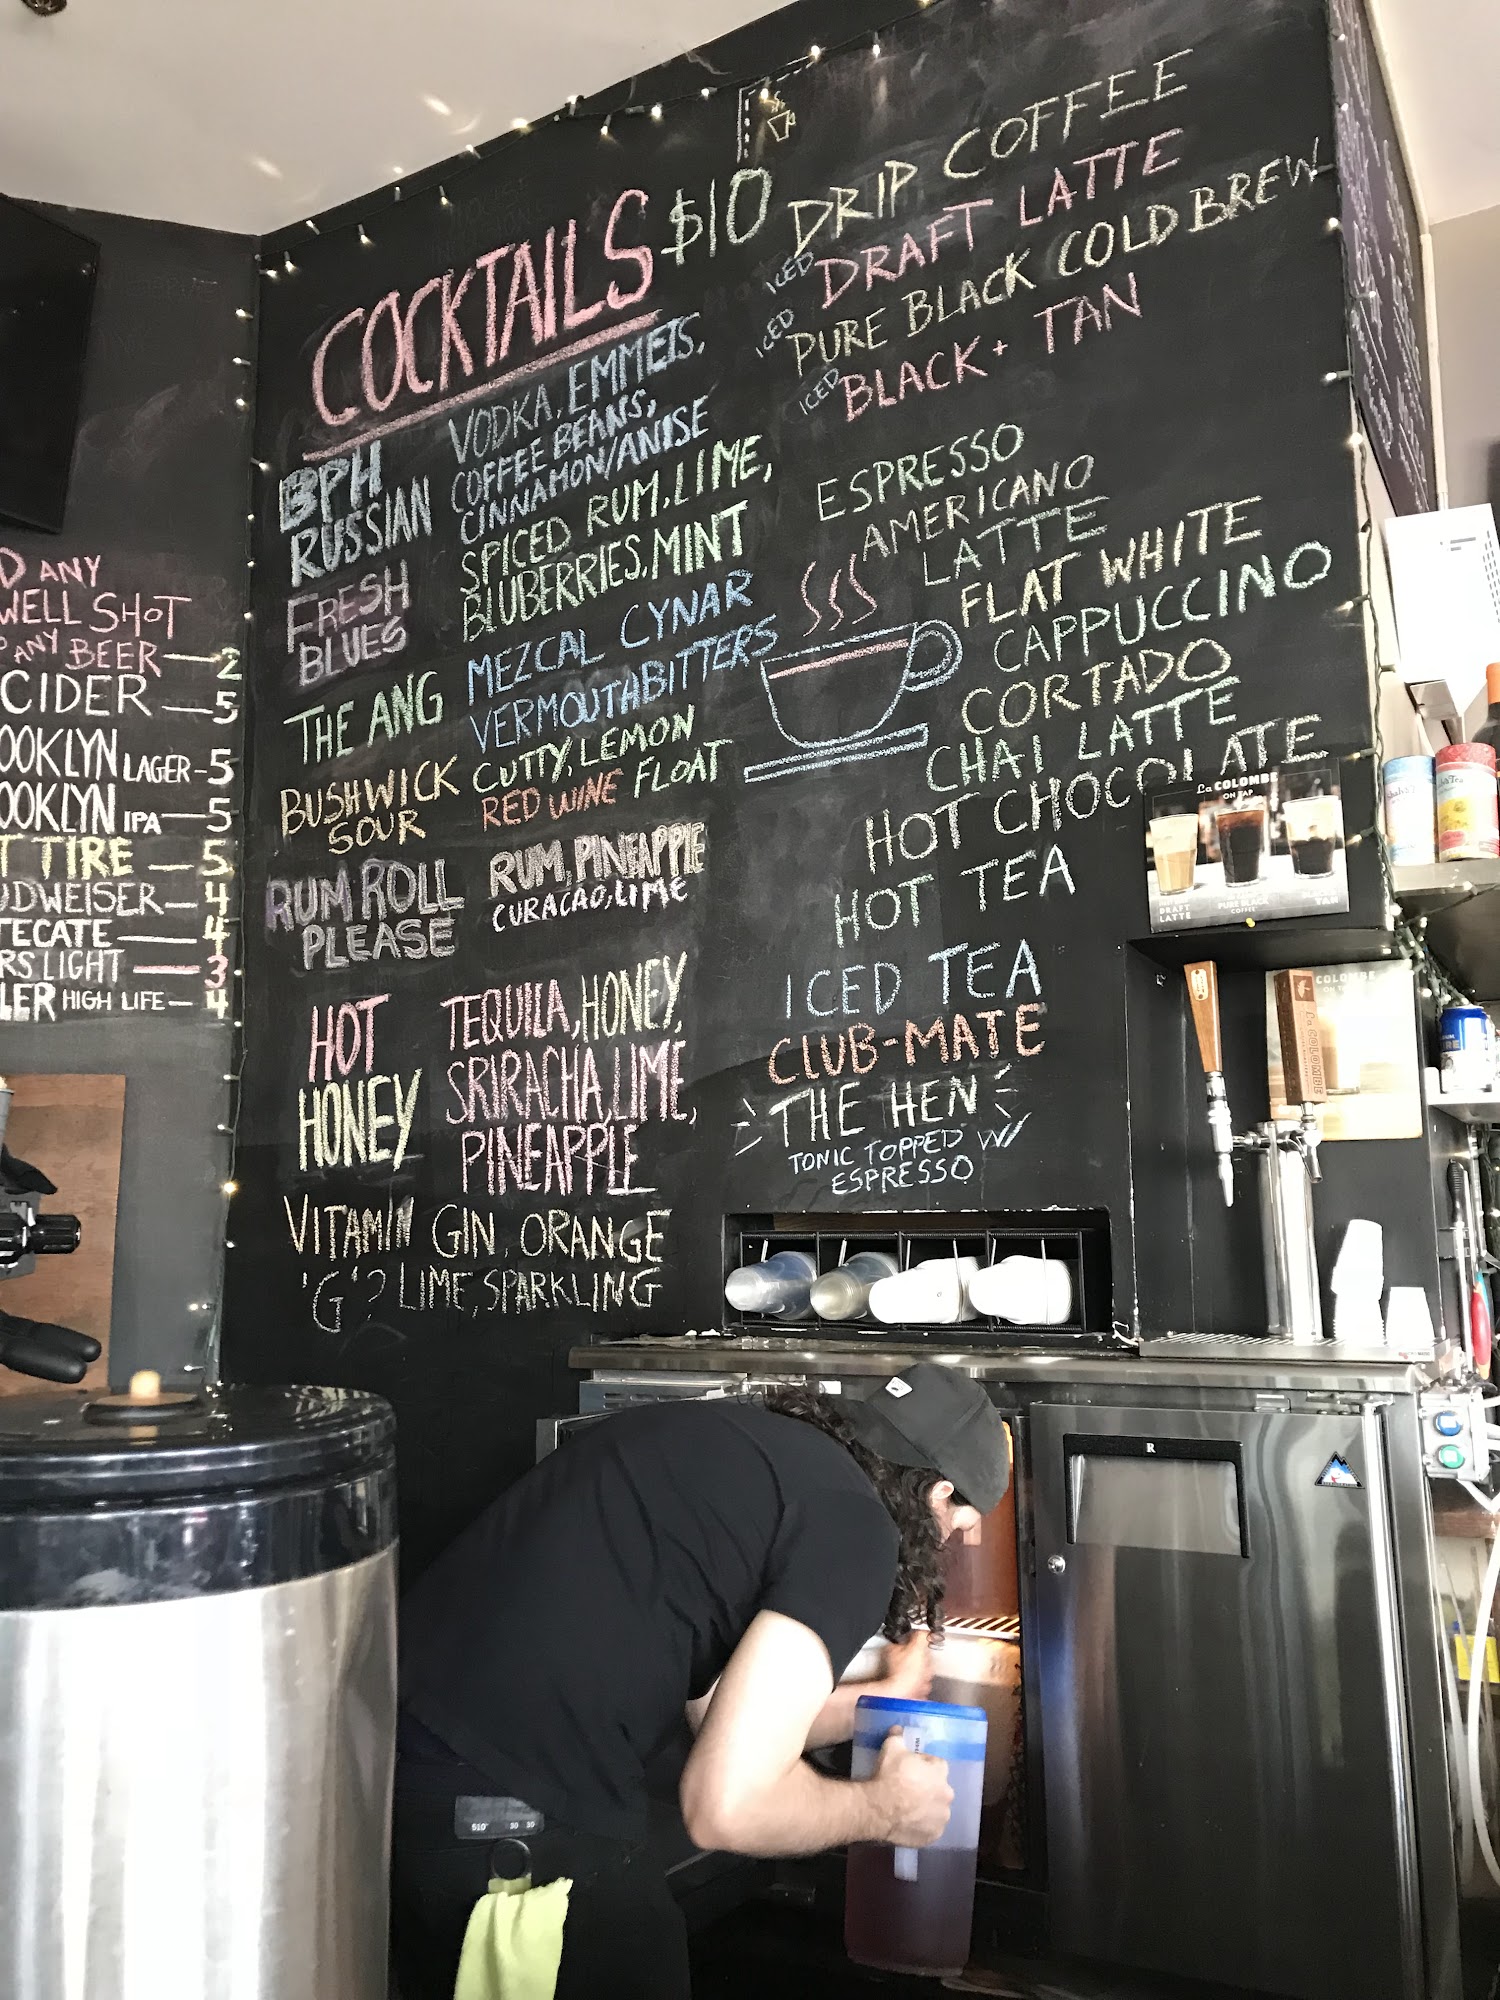 D ANY
WELL SHOT
ANY BEER — 2
CIDER — 5
OOKLYN LAGER - 5
OOKLYN IPA - 5
T TIRE — 5
UDWEISER — 4
TECATE — 4
RS LIGHT — 3
LER HIGH LIFE — 4
COCKTAILS $10
BPH RUSSIAN
VODKA, EMMETS,
COFFEE BEANS,
CINNAMON/ANISE
FRESH BLUES
SPICED RUM, LIME,
BLUBERRIES, MINT
THE ANG
MEZCAL CYNAR
VERMOUTH BITTERS
BUSHWICK SOUR
CUTTY, LEMON
RED WINE FLOAT
RUM ROLL PLEASE
RUM, PINEAPPLE
CURACAO, LIME
HOT HONEY
TEQUILA, HONEY,
SRIRACHA, LIME,
PINEAPPLE
VITAMIN 'G'?
GIN, ORANGE
LIME, SPARKLING
DRIP COFFEE
ICED DRAFT LATTE
ICED PURE BLACK COLD BREW
ICED BLACK + TAN
ESPRESSO
AMERICANO
LATTE
FLAT WHITE
CAPPUCCINO
CORTADO
CHAI LATTE
HOT CHOCOLATE
HOT TEA
ICED TEA
CLUB-MATE
THE HEN
TONIC TOPPED W/
ESPRESSO
La COLOMBE
ON TAP
DRAFT
LATTE
PURE BLACK
COFFEE
TAN
COLOMBE
La COLOMBE
R